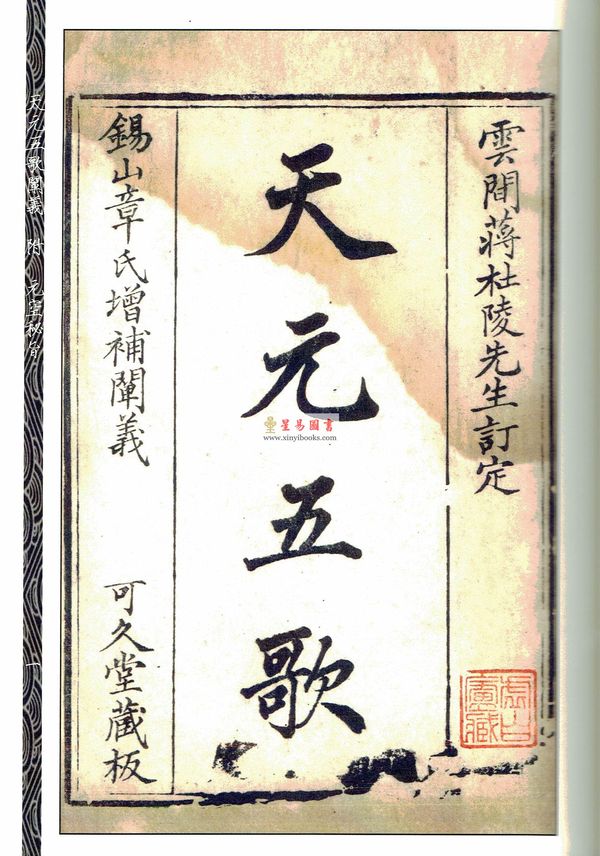 雲間蔣杜陵先生訂定
天元五歌
錫山章氏增補闡義
可久堂藏板
天元五歌闡義 附 元空秘旨
一
星易圖書
www.xinyibooks.com